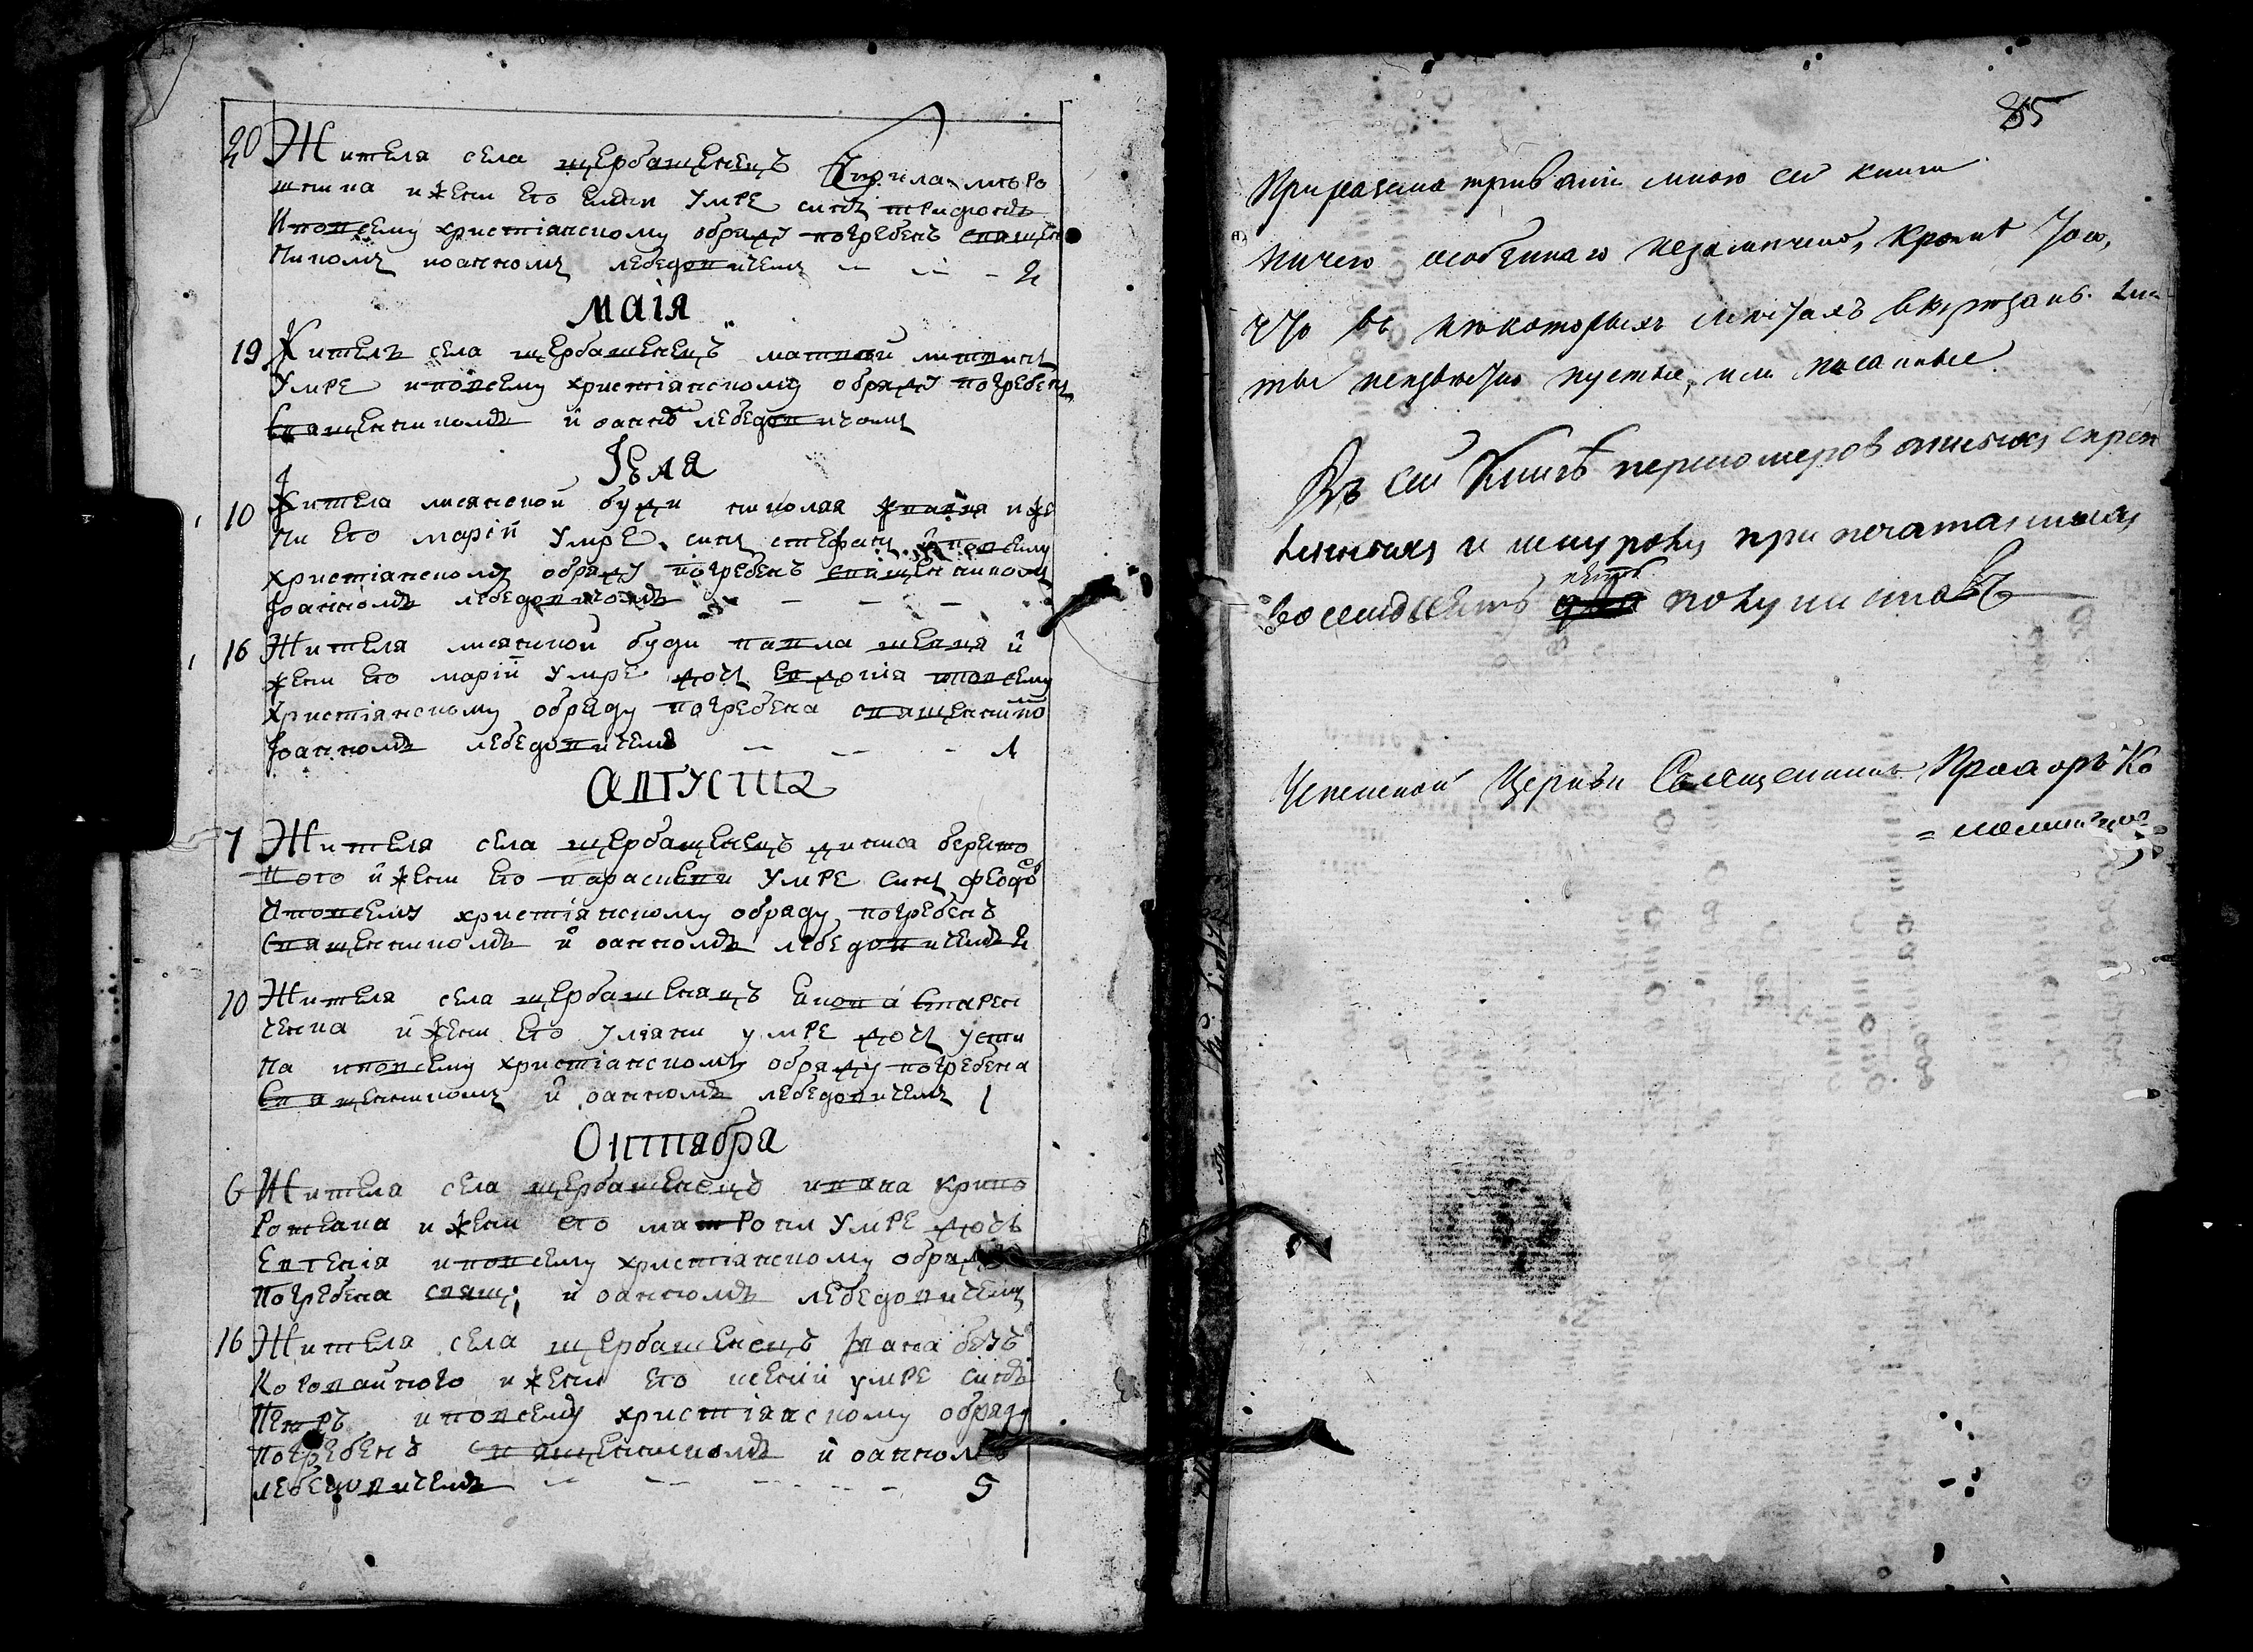 20 Жителя села щербашенецъ Кирила
и жени его умре синъ трифонъ
и повсему христіанскому обряду погребенъ священ
никомъ иоанномъ лебедовичемъ 2
маія
19 Житель села щербашенецъ матвей литвинъ
умре и повсему христіанскому обряду погребенъ
Священникомъ иоанномъ лебедовичомъ
Июля
10 Жителя лисянской буди николая и же
ни его маріи умре синъ стефанъ и повсему
христіанскому обряду погребенъ священникомъ
Іоанномъ лебедовичомъ
16 Жителя лисянской буди павла шевця и
жени его маріи умре дочъ Евдокія и повсему
Христіанскому обряду погребена священнико
Іоанномъ лебедовичемъ 1
августа
7 Жителя села щербашенецъ дениса
и жени его параскеви умре Синъ феодо
И повсему христіанскому обряду погребенъ
Священникомъ иоанномъ лебедовичемъ 2
10 Жителя села щербашенецъ
и жени его улияни умре дочъ усти
на и повсему христіанскому обряду погребена
Священникомъ иоанномъ лебедовичемъ 1
Октября
6 Жителя села щербашенецъ ивана криво
и жени его матрони умре дочъ
Евгенія и повсему христіанскому обряду
погребена свящ: иоанномъ лебедовичемъ
16 Жителя села щербашенецъ Івана безъ
коровайного и жени его ксеніи умре синъ
Петръ и повсему христіанскому обряду
погребенъ священникомъ иоанномъ
лебедовичемъ 5
85
При мною сей книги
ничего особеннаго незамечено, кроме того,
что въ некоторыхъ местахъ вырезанъ. лис
ты неизвестно пустые, или писанные.
Въ сей Книгѣ перномерованныхъ скреп
ленныхъ и шнуромъ припечатанныхъ
восемдесятъ пять полулистовъ
Успенской Церкви Священникъ Ко